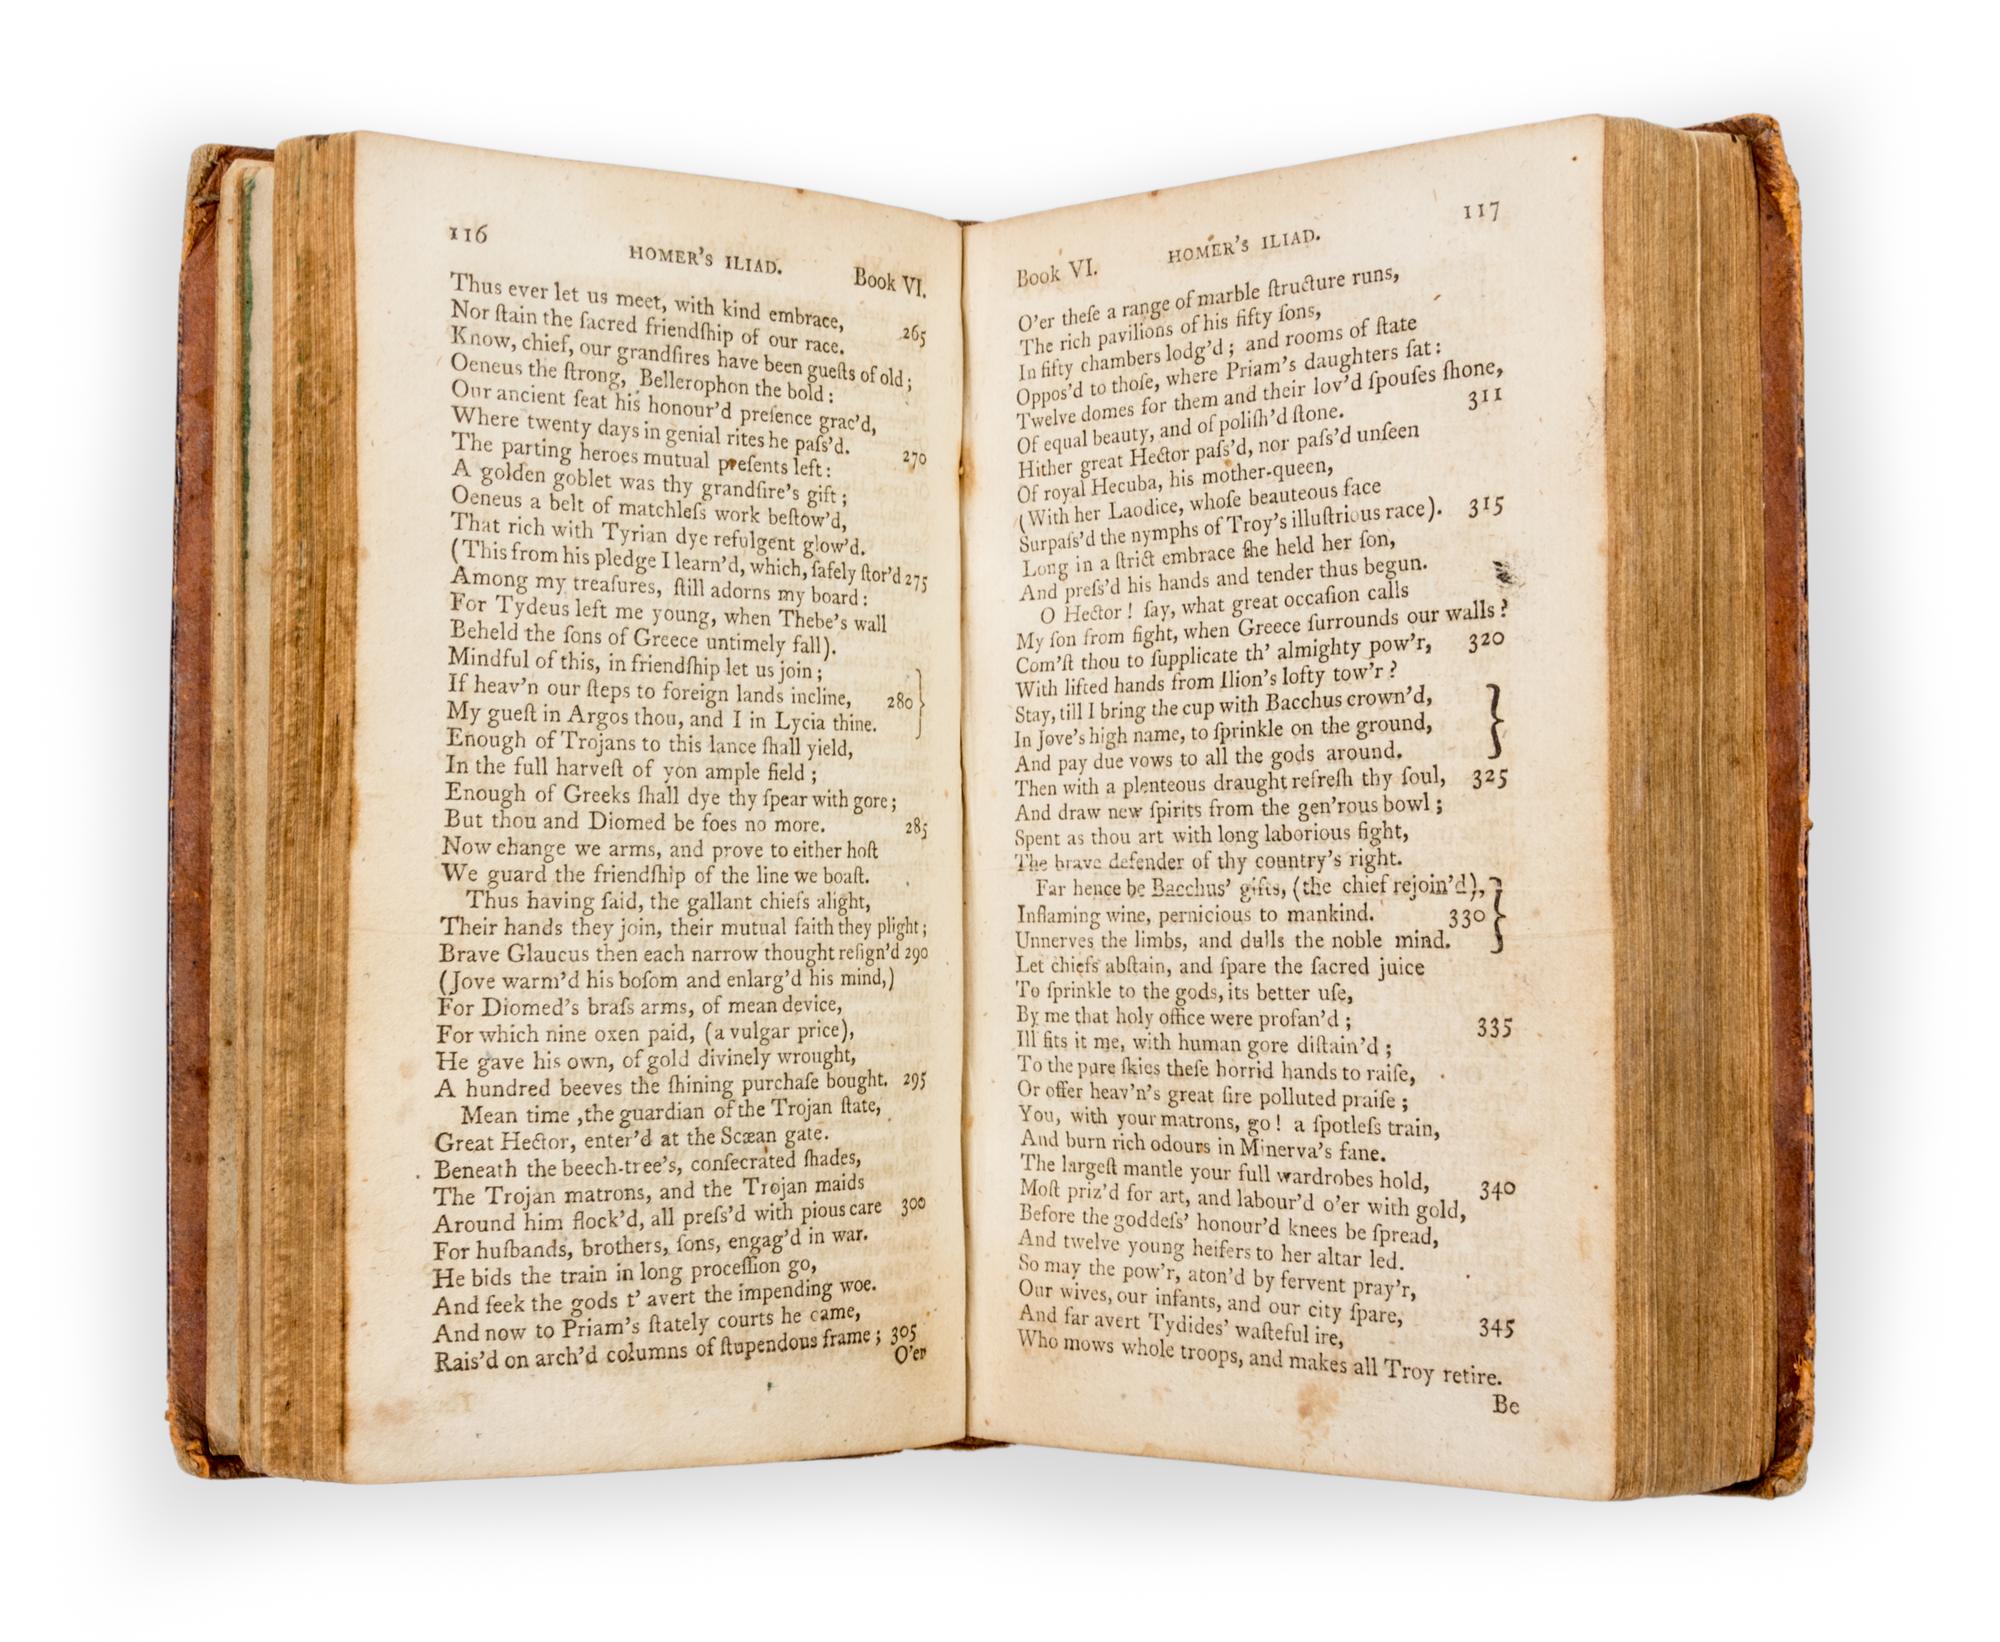 116
HOMER'S ILIAD.
Book VI.
Thus ever let us meet, with kind embrace,
Nor ſtain the ſacred friendſhip of our race. 265
Know, chief, our grandſires have been gueſts of old;
Oeneus the ſtrong, Bellerophon the bold:
Our ancient ſeat his honour'd preſence grac'd,
Where twenty days in genial rites he paſs'd.
The parting heroes mutual preſents left: 270
A golden goblet was thy grandſire's gift;
Oeneus a belt of matchleſs work beſtow'd,
That rich with Tyrian dye refulgent glow'd.
(This from his pledge I learn'd, which, ſafely ſtor'd 275
Among my treaſures, ſtill adorns my board:
For Tydeus left me young, when Thebe's wall
Beheld the ſons of Greece untimely fall).
Mindful of this, in friendſhip let us join;
If heav'n our ſteps to foreign lands incline, 280
My gueſt in Argos thou, and I in Lycia thine.
Enough of Trojans to this lance ſhall yield,
In the full harveſt of yon ample field;
Enough of Greeks ſhall dye thy ſpear with gore;
But thou and Diomed be foes no more. 285
Now change we arms, and prove to either hoſt
We guard the friendſhip of the line we boaſt.
Thus having ſaid, the gallant chiefs alight,
Their hands they join, their mutual faith they plight;
Brave Glaucus then each narrow thought reſign'd 290
(Jove warm'd his boſom and enlarg'd his mind,)
For Diomed's braſs arms, of mean device,
For which nine oxen paid, (a vulgar price),
He gave his own, of gold divinely wrought,
A hundred beeves the ſhining purchaſe bought. 295
Mean time ,the guardian of the Trojan ſtate,
Great Hector, enter'd at the Scæan gate.
Beneath the beech-tree's, conſecrated ſhades,
The Trojan matrons, and the Trojan maids
Around him flock'd, all preſs'd with pious care 300
For huſbands, brothers, ſons, engag'd in war.
He bids the train in long proceſſion go,
And ſeek the gods t' avert the impending woe.
And now to Priam's ſtately courts he came,
Rais'd on arch'd columns of ſtupendous frame; 305
O'er
117
HOMER'S ILIAD.
Book VI.
O'er theſe a range of marble ſtructure runs,
The rich pavilions of his fifty ſons,
In fifty chambers lodg'd; and rooms of ſtate
Oppos'd to thoſe, where Priam's daughters ſat:
Twelve domes for them and their lov'd ſpouſes ſhone,
Of equal beauty, and of poliſh'd ſtone. 311
Hither great Hector paſs'd, nor paſs'd unſeen
Of royal Hecuba, his mother-queen,
(With her Laodice, whoſe beauteous face
Surpaſs'd the nymphs of Troy's illuſtrious race). 315
Long in a ſtrict embrace ſhe held her ſon,
And preſs'd his hands and tender thus begun.
O Hector! ſay, what great occaſion calls
My ſon from fight, when Greece ſurrounds our walls?
Com'ſt thou to ſupplicate th' almighty pow'r, 320
With lifted hands from Ilion's lofty tow'r?
Stay, till I bring the cup with Bacchus crown'd,
In Jove's high name, to ſprinkle on the ground,
And pay due vows to all the gods around.
Then with a plenteous draught refreſh thy ſoul, 325
And draw new ſpirits from the gen'rous bowl;
Spent as thou art with long laborious fight,
The brave defender of thy country's right.
Far hence be Bacchus' gifts, (the chief rejoin'd),
Inflaming wine, pernicious to mankind. 330
Unnerves the limbs, and dulls the noble mind.
Let chiefs abſtain, and ſpare the ſacred juice
To ſprinkle to the gods, its better uſe,
By me that holy office were profan'd;
Ill fits it me, with human gore diſtain'd; 335
To the pure ſkies theſe horrid hands to raiſe,
Or offer heav'n's great ſire polluted praiſe;
You, with your matrons, go! a ſpotleſs train,
And burn rich odours in Minerva's fane.
The largeſt mantle your full wardrobes hold, 340
Moſt priz'd for art, and labour'd o'er with gold,
Before the goddeſs' honour'd knees be ſpread,
And twelve young heifers to her altar led.
So may the pow'r, aton'd by fervent pray'r,
Our wives, our infants, and our city ſpare, 345
And far avert Tydides' waſteful ire,
Who mows whole troops, and makes all Troy retire.
Be